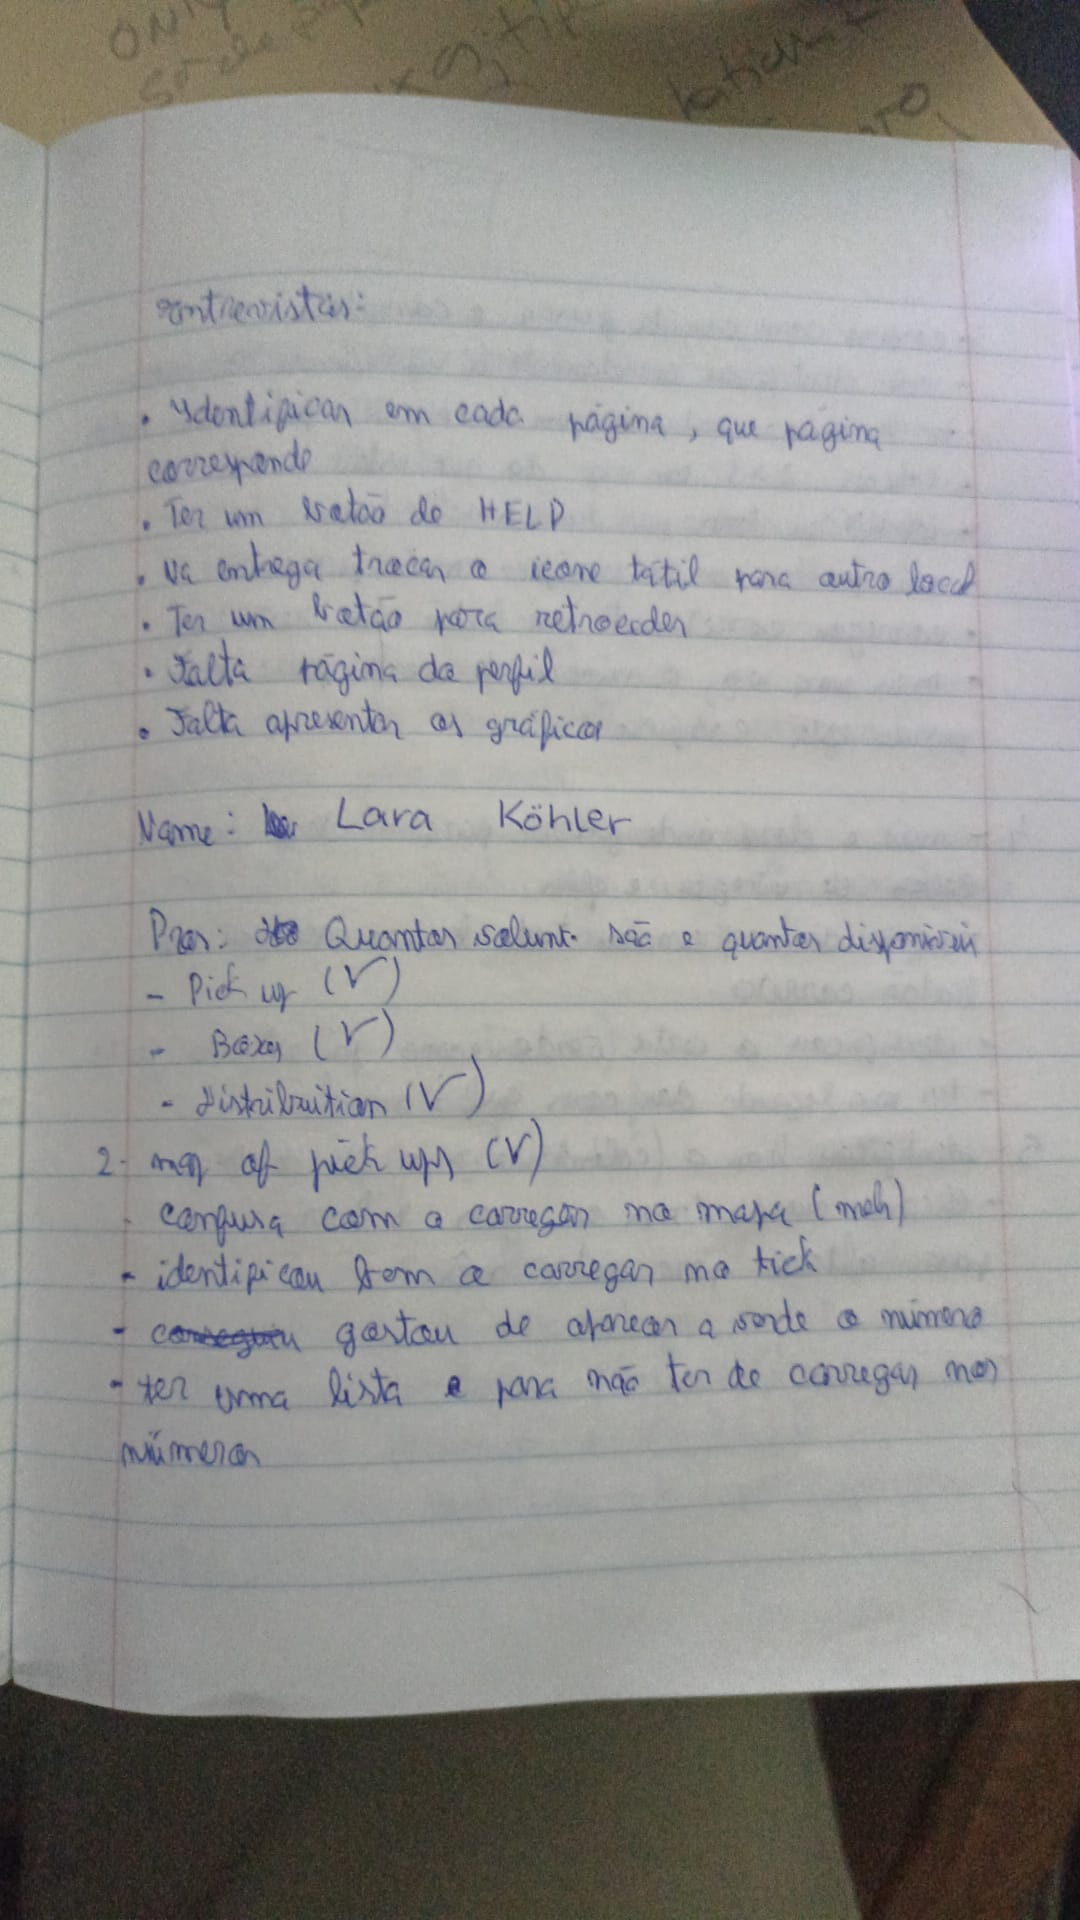 ONLY
entrevistas:
• Identificar em cada página, que página
corresponde
• Ter um botão de HELP
• Na entrega trocar o icone tátil para outro local
• Ter um botão para retroceder
• Falta página do perfil
• Falta apresentar os gráficos
Name: Lara Köhler
Pros: Quantos volunt. são e quantos disponíveis
- Pick up (V)
- Boxes (V)
- Distribuition (V)
2- map of pick ups (V)
- confusa com o carregar no mapa (meh)
- identificou bem o carregar no tick
- conseguiu gostou de aparecer a verde o número
- ter uma lista e para não ter de carregar nos
números